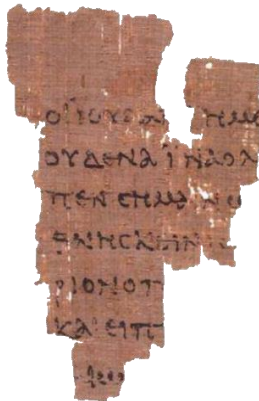 ΟΙΙΟΥΔΑΙ ΗΜ
ΟΥΔΕΝΑΙΝΑΟΛ
ΠΕΝϹΗΜΑΙΝω
ΘΝΗϹΚΕΙΝ
ΡΙΟΝΟΠ
ΚΑΙΕΙΠ